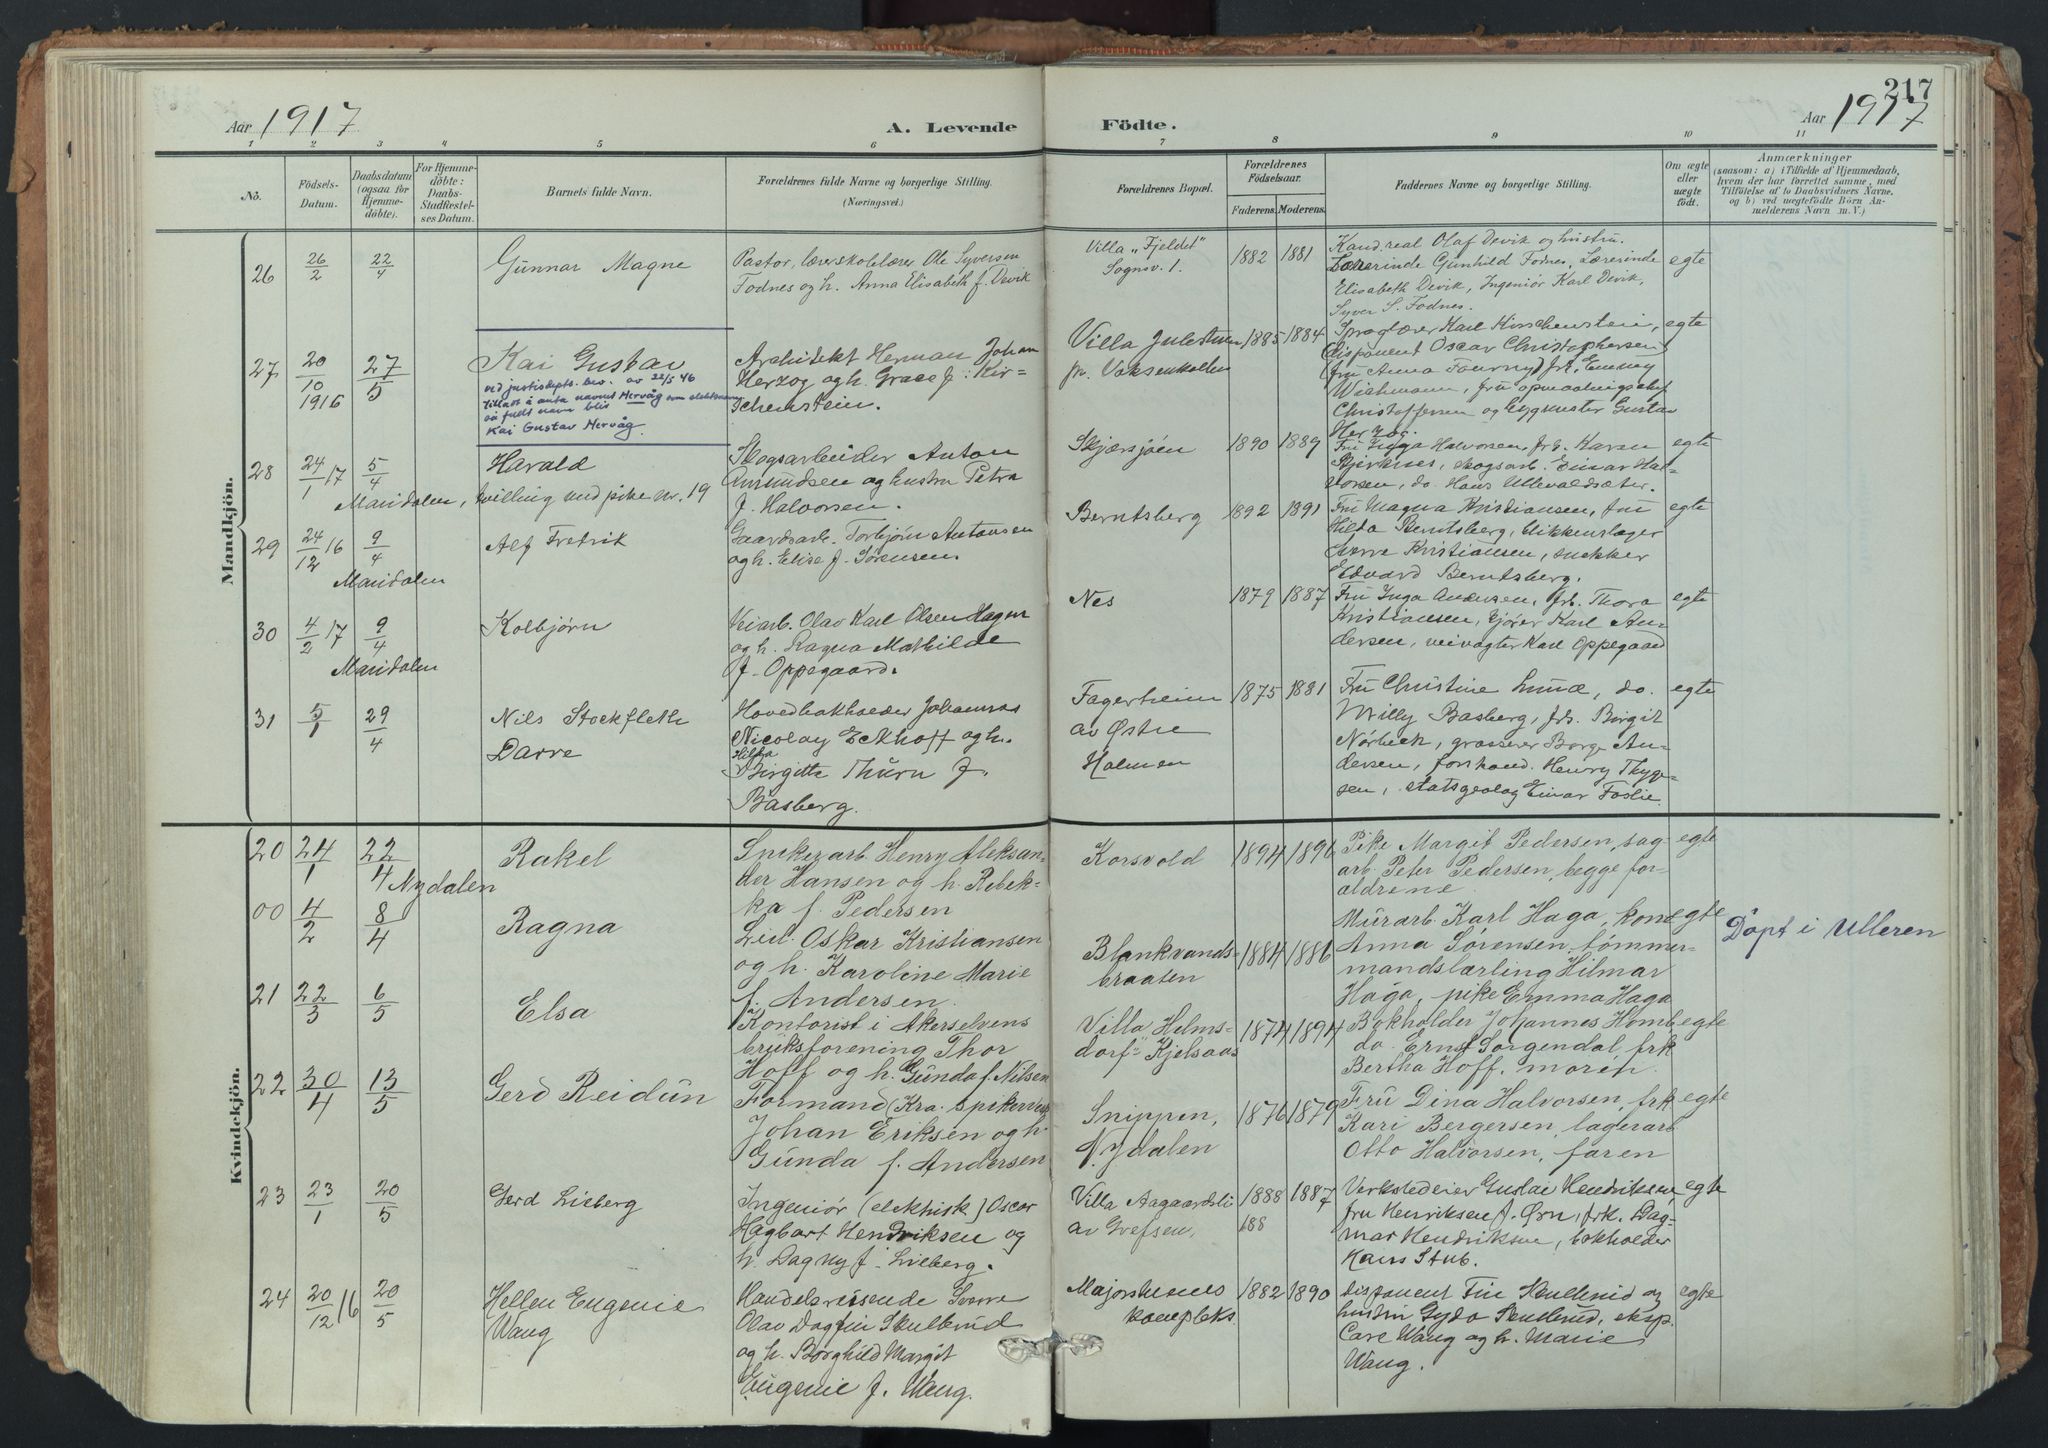 217
Aar 1917
A. Levende
Födte.
Aar 1917
1 2 3 4 5 6 7 8 9 10 11
No.
Födsels-
Datum.
Daabsdatum
(ogsaa for
Hjemme-
döbte).
For Hjemme-
döbte:
Daabs-
Stadfæstel-
ses Datum.
Barnets fulde Navn.
Forældrenes fulde Navne og borgerlige Stilling.
(Næringsvei.)
Forældrenes Bopæl.
Forældrenes
Födselsaar.
Faderens. Moderens.
Faddernes Navne og borgerlige Stilling.
Om ægte
eller
uægte
födt.
Anmærkninger
(saasom: a) i Tilfælde af Hjemmedaab,
hvem der har forrettet samme, med
Tilföielse af to Daabsvidners Navne,
og b) ved uægtefödte Börn An-
melderens Navn m. V.)
Mandkjön.
26 26/2 22/4 Gunnar Magne
Pastor, lærerskolelærer Ole Syversen
Fodnes og h. Anna Elisabeth f. Devik
Villa "Fjeldet"
Sognsv. 1.
1882 1881
Kand. real Olaf Devik og hustru.
Lærerinde Gunhild Fodnes, Lærerinde
Elisabeth Devik, Ingeniör Karl Devik,
Syver S. Fodnes.
egte
27 20/10 1916 27/5 Kai Gustav
ved justisdepts. bev. av 22/5 46
tillatt å anta navnet Hervåg som slektsnavn
så fulde navn blir
Kai Gustav Hervåg
Architekt Herman Johan
Herzog og h. Grace f. Kir-
schenstein.
Villa
pr. Voksenkollen
1885 1884
Sproglærer Karl Kirschenstein,
disponent Oscar Christophersen
fru Anna Fourny, frk. Emmy
Wichmann, fru opmaalingschef
Christoffersen og bygmester Gustav
Herzog.
egte
28 24/1 17 5/4 Harald
Maridalen, tvilling med pike nr. 19
Skogsarbeider Anton
Amundsen og hustru Petra
f. Halvorsen.
Skjærsjøen
1890 1889
Fru Inga Halvorsen, frk. Karen
Bjerknes, skogsarb. Einar Hal-
vorsen, do. Hans Ullevaldsæter.
egte
29 24/12 16 9/4 Alf Fredrik
Maridalen
Gaardsarb. Torbjörn Antonsen
og h. Elise f. Sörensen.
Berntsberg
1892 1891
Fru Magna Kristiansen, fru
Hilda Berntsberg, blikkenslager
Sverre Kristiansen, snekker
Edvard Berntsberg.
egte
30 4/2 17 9/4 Kolbjørn
Maridalen
Veiarb. Olav Karl Olsen Hagen
og h. Ragna Mathilde
f. Oppegaard.
Nes
1879 1887
Fru Inga Andersen, frk. Thora
Kristiansen, kjører Karl An-
dersen, veivogter Karl Oppegaard
egte
31 5/1 29/4 Nils Stockfleth
Darre
Hovedbokholder Johannes
Nicolay Eckhoff og h.
Hilda
Birgitte Thurn f.
Basberg.
Fagerheim
av Østre
Holmen
1875 1881
Fru Christine Lund, do.
Milly Basberg, frk. Birgit
Nörbeck, grosserer Borge An-
dersen, forstkand. Henry Thyge-
sen, statsgeolog Einar Foslie
egte
Kvindekjön.
20 24/1 22/4 Rakel
Nydalen
Spikerarb. Henry Aleksan-
der Hansen og h. Rebek-
ka f. Pedersen
Korsvold
1894 1896
Pike Margit Pedersen, sag-
arb. Peter Pedersen, begge for-
ældrene.
egte
00 4/2 8/4 Ragna
Leil. Oskar Kristiansen
og h. Karoline Marie
f. Andersen.
Blankvands-
braaten
1884 1886
Murarb. Karl Haga, kone
Anna Sørensen, tømmer-
mandslærling Hilmar
Haga, pike Emma Haga
egte
Döpt i Ulleren
21 22/3 6/5 Elsa
Kontorist i Akerselvens
bruksforening Thor
Hoff og h. Gunda f. Nilsen
Villa Helms-
dorf" Kjelsaas
1874 1894
Bokholder Johannes Homb
do. Ernst Sorgendal, frk
Bertha Hoff, moren.
egte
22 30/4 13/5 Gerd Reidun
Formand (Kra. Spikerverk
Johan Eriksen og h.
Gunda f. Andersen
Snippen,
Nydalen
1876 1879
Fru Dina Halvorsen, frk
Kari Bergersen, lagerarb
Otto Halvorsen, faren
egte
23 23/1 20/5 Gerd Lieberg
Ingeniör (elektrisk) Oscar
Hagbart Hendriksen og
h. Dagny f. Lieberg.
Villa Aagaardsli
av Grefsen,
1888 1887
188
Verkstedeier Gustav Hendriksen,
fru Henriksen f. Ørn, frk. Dag-
mar Hendriksen, bokholder
Hans Stub.
egte
24 20/12 16 20/5 Hellen Eugenie
Waug
Handelsreisende Sverre
Olav Dagfin Skullerud
og h. Borghild Margit
Eugenie f. Waug.
Majorstuenes
kompleks.
1882 1890
Disponent Fin Skullerud og
hustru Gyda Skullerud, eksp.
Carl Waug og h. Marie
Waug.
egte